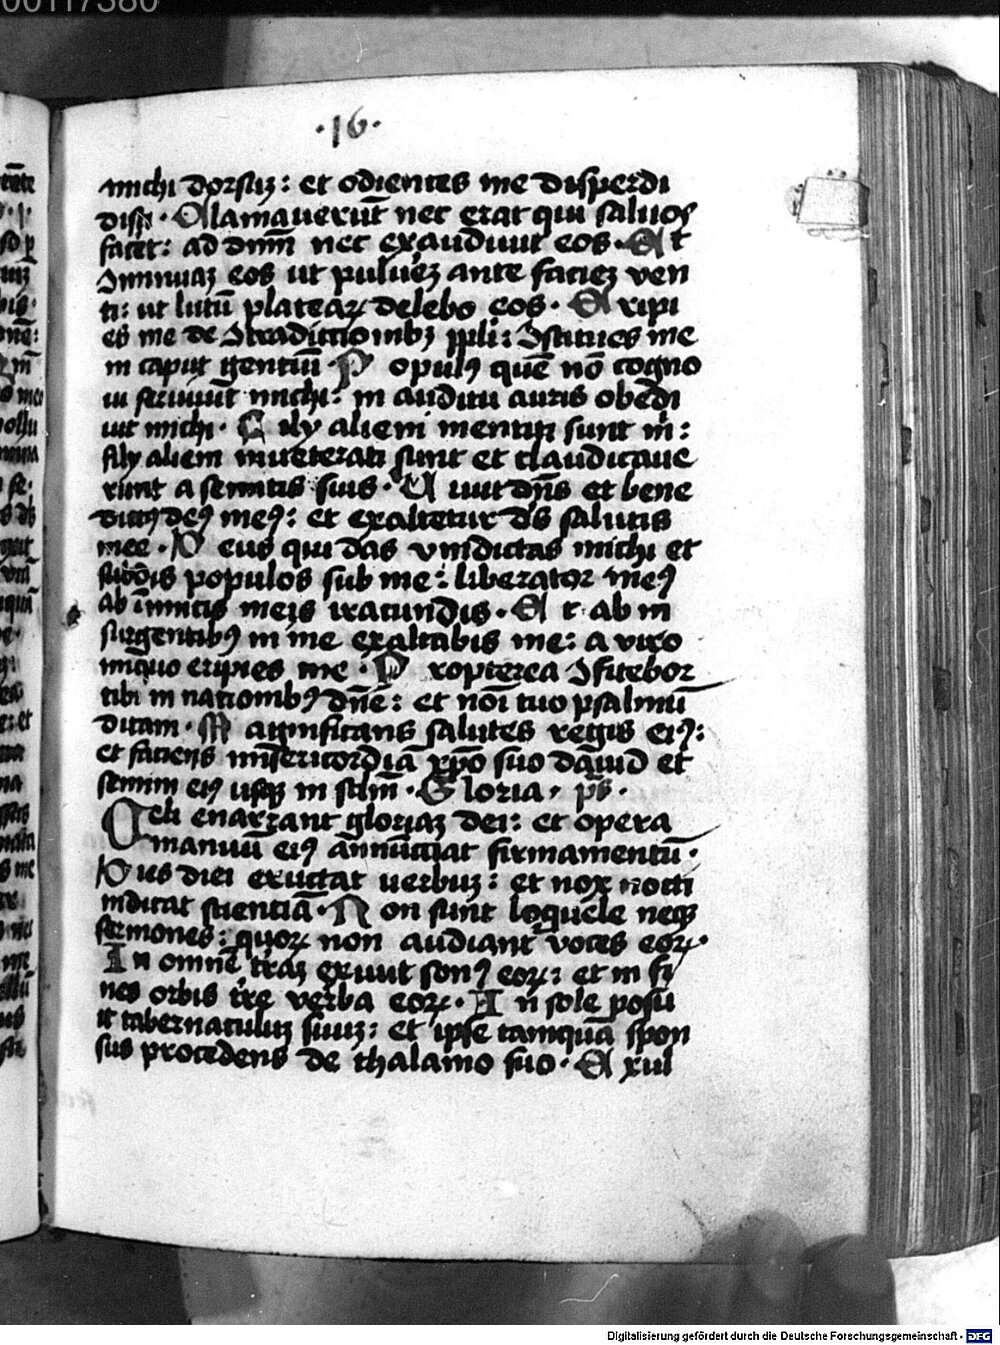 00117380
·16·
michi dorsuꝫ : et odientes me disperdi
disti · Clamauerūt nec erat qui saluos
facet : ad dn̄m nec exaudiuit eos · Et
9minuaꝫ eos ut pulueꝫ ante facieꝫ ven
ti : ut lutū plateaꝝ delebo eos · Eripi
es me de 9tradictionibꝫ ppli : 9stitues me
in caput gentiū · Populꝰ quē nō cogno
ui seruiuit michi : in auditu auris obedi
uit michi · Filij alieni mentiti sunt m̄ :
filij alieni inueterati sunt et claudicaue
runt a semitis suis · Uiuit dn̄s et bene
dictꝰ deꝰ meꝰ : et exaltetur ds̄ salutis
mee · Deus qui das vindictas michi et
subdis populos sub me : liberator meꝰ
ab inimicis meis iracundis · Et ab in
surgentibꝰ in me exaltabis me : a viro
iniquo eripies me · Propterea 9fitebor
tibi in nationibꝰ dn̄e : et noī tuo psalmū
dicam · Magnificans salutes regis eiꝰ :
et faciens misericordiā xp̄o suo dauid et
semini eiꝰ usqꝫ in sclm̄ · Gloria · ps̄ ·
Celi enarrant gloriaꝫ dei : et opera
manuū eiꝰ annūciat firmamentū ·
Dies diei eructat uerbuꝫ : et nox nocti
indicat scientiā · Non sunt loquele neqꝫ
sermones : quoꝝ non audiant voces eoꝝ ·
In omnē t̄raꝫ exiuit sonꝰ eoꝝ : et in fi
nes orbis t̄re verba eoꝝ · In sole posu
it tabernaculuꝫ suuꝫ : et ipse tamquā spon
sus procedens de thalamo suo · Exul
Digitalisierung gefördert durch die Deutsche Forschungsgemeinschaft - DFG